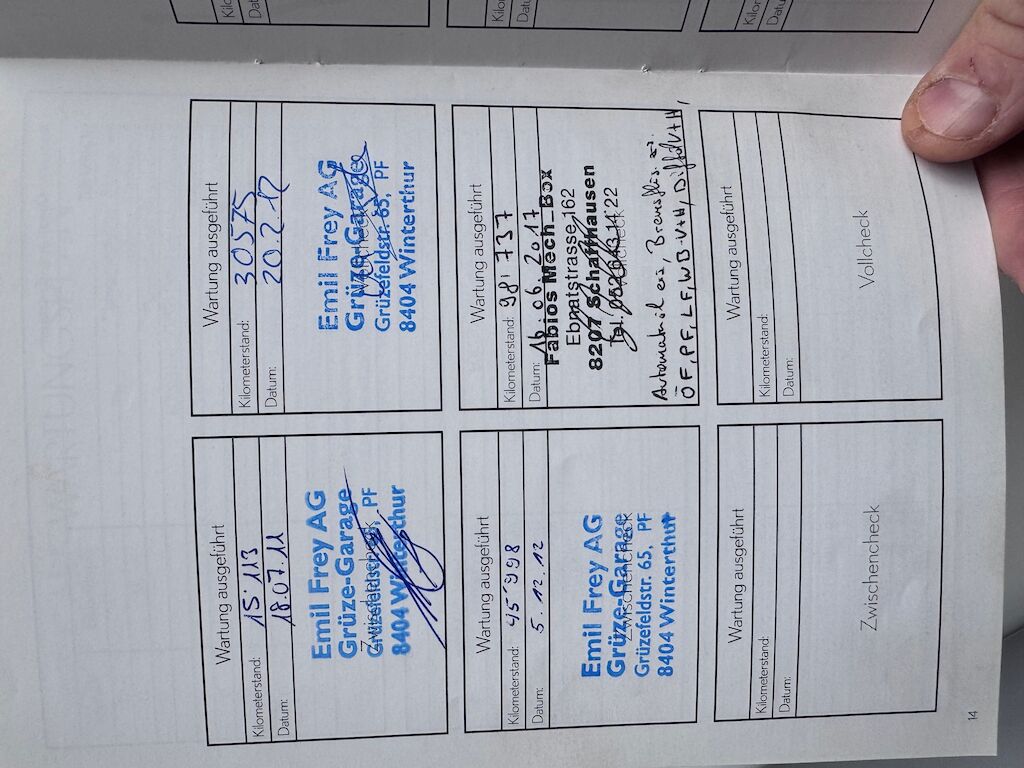 Wartung ausgeführt
Kilometerstand: 15'113
Datum: 18.07.11
Emil Frey AG
Grüze-Garage
Zwischencheck
Grüzefeldstr. 65, PF
8404 Winterthur
Wartung ausgeführt
Kilometerstand: 30575
Datum: 20.2.12
Emil Frey AG
Grüze-Garage
Vollcheck
Grüzefeldstr. 65, PF
8404 Winterthur
Wartung ausgeführt
Kilometerstand: 45'998
Datum: 5.12.12
Emil Frey AG
Grüze-Garage
Zwischencheck
Grüzefeldstr. 65, PF
8404 Winterthur
Wartung ausgeführt
Kilometerstand: 98'737
Datum: 16.06.2017
Fabios Mech_Box
Ebnatstrasse 162
8207 Schaffhausen
Vollcheck
Automatenöl ers, Bremsflüss. ers.
ÖF, PF, LF, WB V+H, Diff öl V+H,
Wartung ausgeführt
Kilometerstand:
Datum:
Zwischencheck
Wartung ausgeführt
Kilometerstand:
Datum:
Vollcheck
14
Kilo
Datu
Kilor
Datu
Kilor
Datu